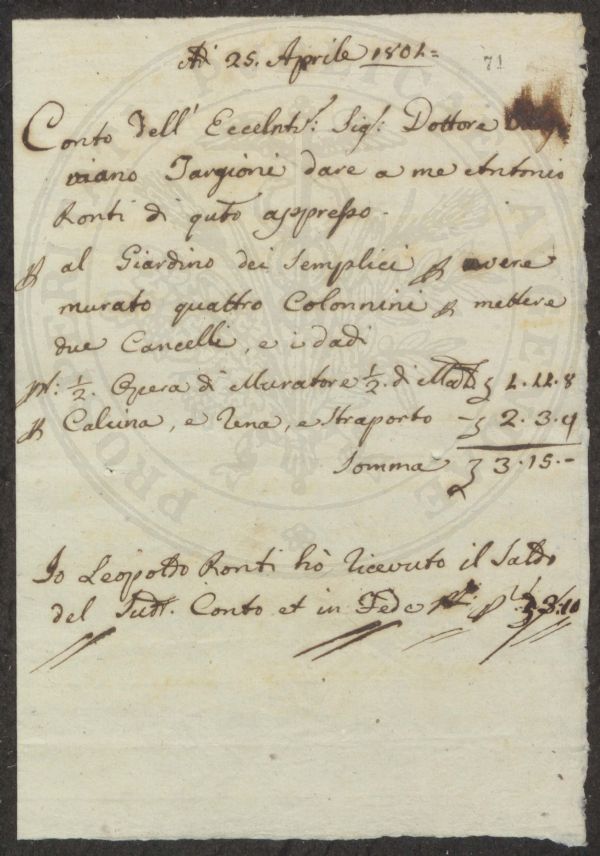 Adi 25. Aprile 1801=
71
Conto dell' Eccelnti.: Sig.: Dottore
viano Targioni dare a me Antonio
Ronti di quto appresso.
p al Giardino dei Semplici p avere
murato quattro Colonnini p mettere
due Cancelli, e i dadi
pr: 1/2. Opera di Muratore 1/2. di
p Calcina, e Rena, e Straporto - 2. 3. 4
Somma 3. 15. -
Io Leopoldo Ronti hò ricevuto il Saldo
del Sudt. Conto et in Fede